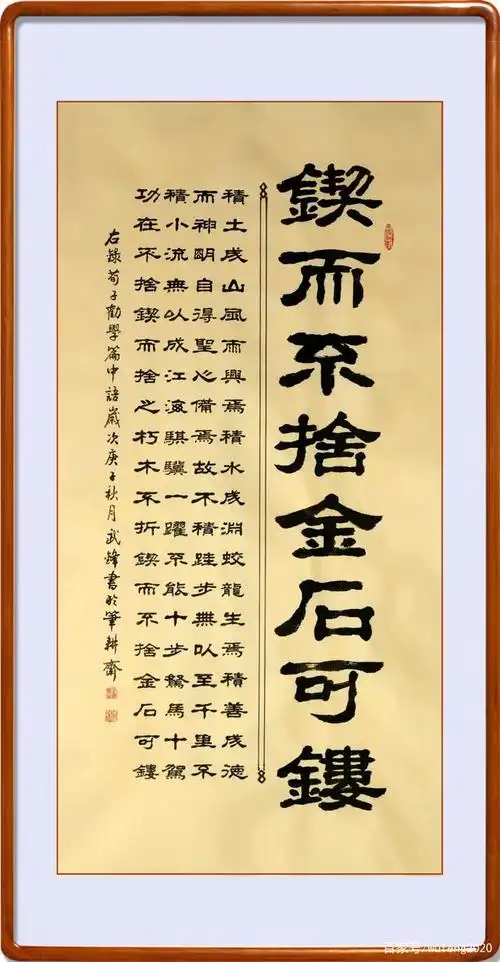 鍥而不捨金石可鏤
積土成山風雨興焉積水成淵蛟龍生焉積善成德
而神明自得聖心備焉故不積跬步無以至千里不
積小流無以成江海騏驥一躍不能十步駑馬十駕
功在不捨鍥而捨之朽木不折鍥而不捨金石可鏤
右錄荀子勸學篇中語歲次庚子秋月武鋒書於筆耕齋
百家号/wufeng2020